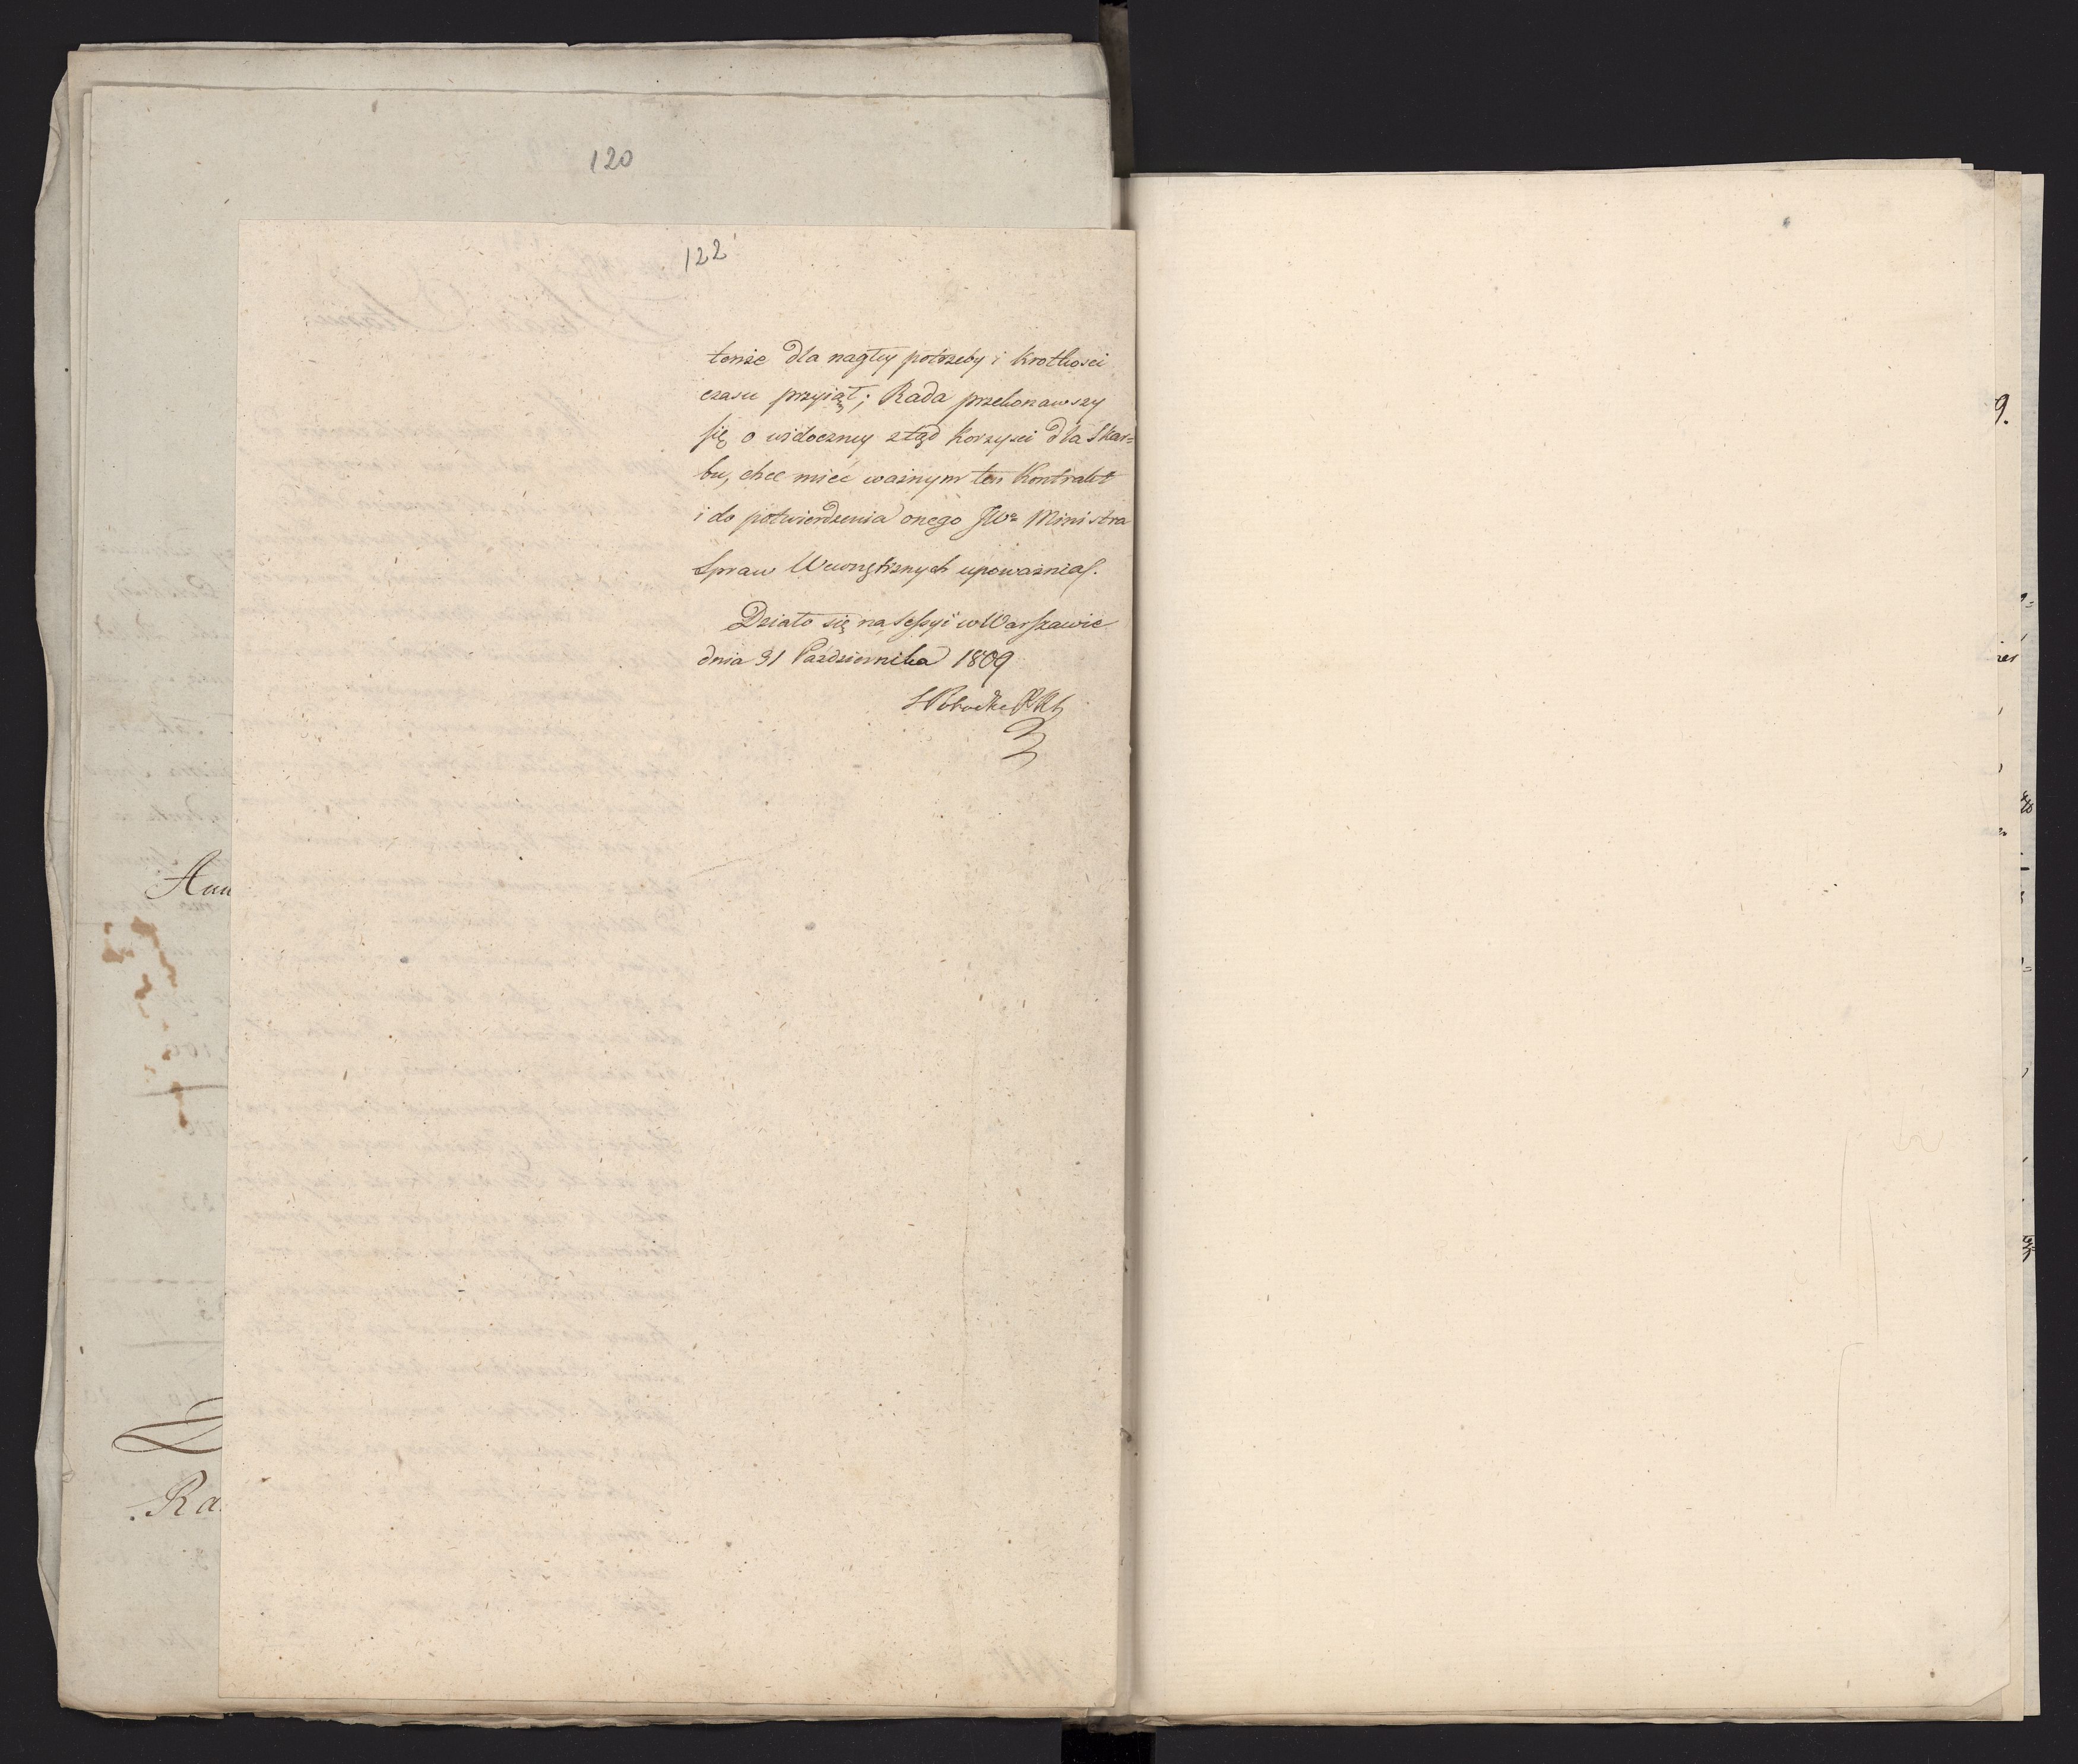 120
122
tenże dla nagłey potrzeby i krotkosci
czasu przyiął; Rada przekonawszy
się o widoczney ztąd korzysci dla Skar=
bu, chce mieć ważnym ten Kontrakt
i do potwierdzenia onego JWo Ministra
Spraw Wewnętrznych upoważnia.
Działo się na Sessyi w Warszawie
dnia 31 Pazdziernika 1809
Auu
Ra
9.